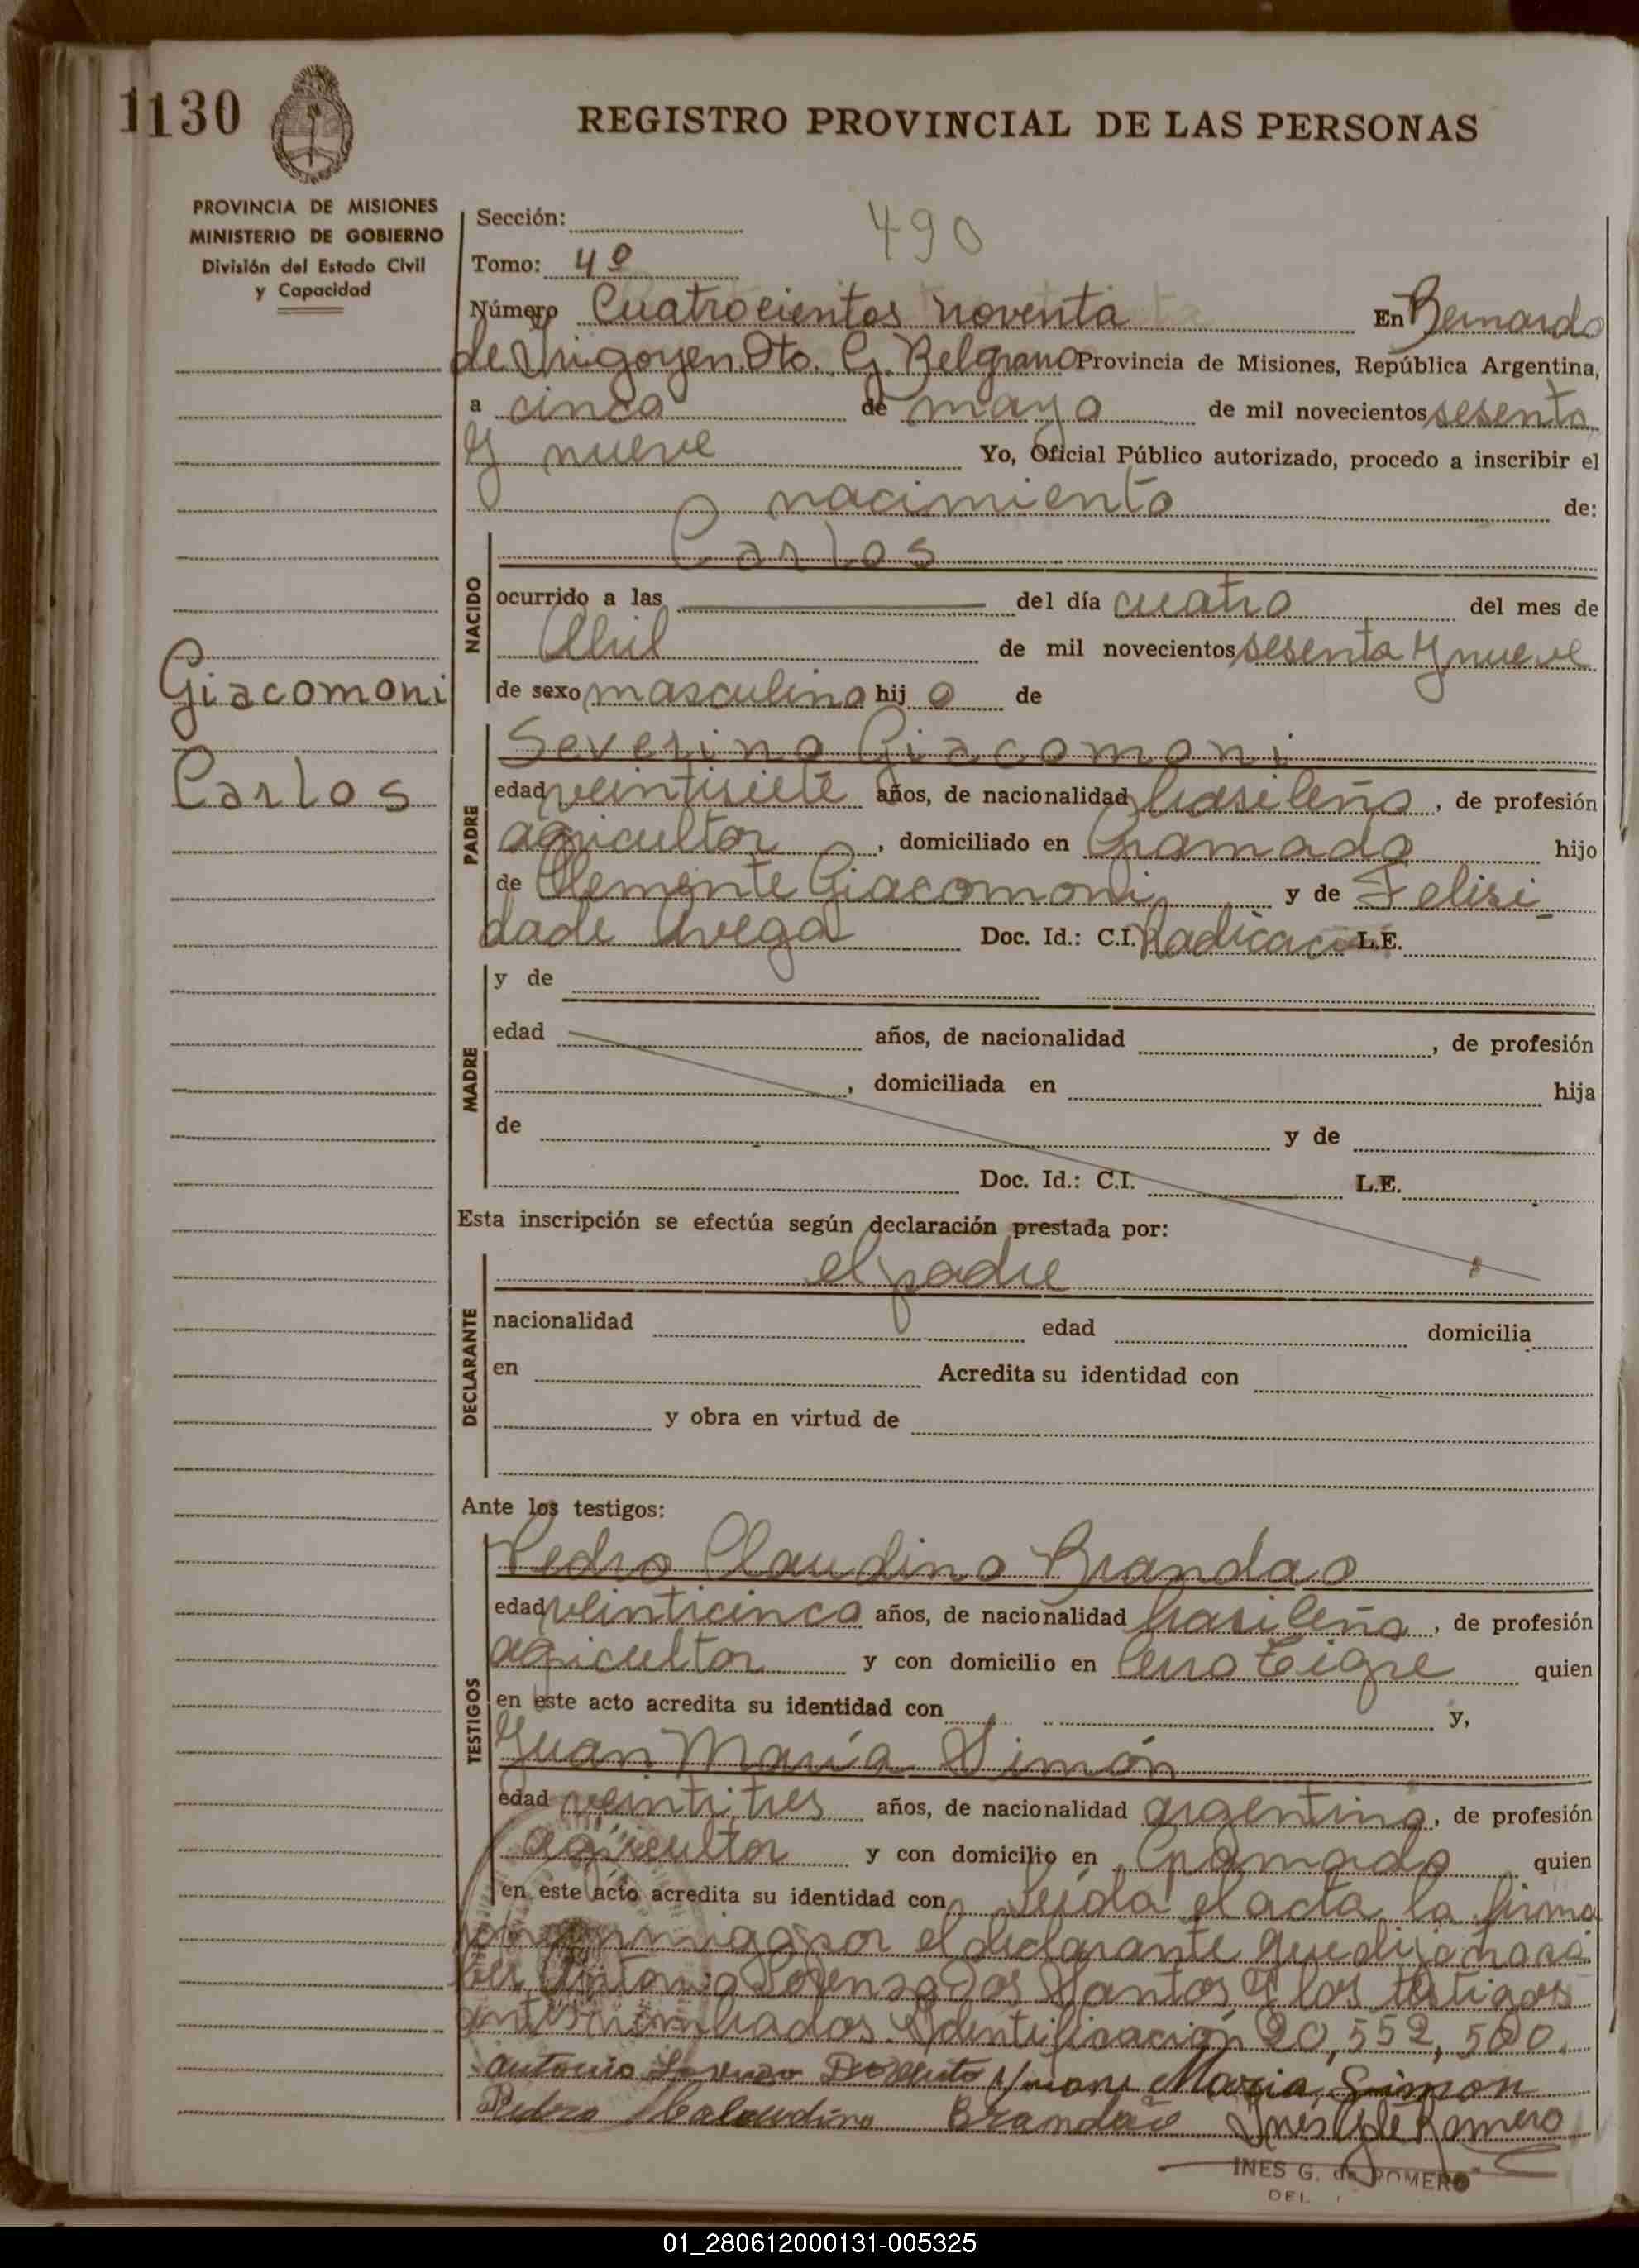 1130
REGISTRO PROVINCIAL DE LAS PERSONAS
PROVINCIA DE MISIONES
MINISTERIO DE GOBIERNO
División del Estado Civil
y Capacidad
Giacomoni
Carlos
490
Sección:
Tomo: 4º
Número Cuatrocientos noventa En Bernardo
de Irigoyen Dto. G. Belgrano Provincia de Misiones, República Argentina,
a cinco de mayo de mil novecientos sesenta
y nueve Yo, Oficial Público autorizado, procedo a inscribir el
nacimiento de:
NACIDO
Carlos
ocurrido a las del día cuatro del mes de
Abril de mil novecientos sesenta y nueve
de sexo masculino hij o de
PADRE
Severino Giacomoni
edad veintisiete años, de nacionalidad brasileña, de profesión
agricultor, domiciliado en Gramado hijo
de Clemente Giacomoni y de Felisi
dade Doc. Id.: C.I. Radicació L.E.
MADRE
y de
edad años, de nacionalidad , de profesión
, domiciliada en hija
de y de
Doc. Id.: C.I. L.E.
Esta inscripción se efectúa según declaración prestada por:
DECLARANTE
el padre
nacionalidad edad domicilia
en Acredita su identidad con
y obra en virtud de
Ante los testigos:
TESTIGOS
Pedro Claudino Brandao
edad veinticinco años, de nacionalidad brasileña, de profesión
agricultor y con domicilio en Cerro Tigre quien
en este acto acredita su identidad con y,
Juan María Simón
edad veintitres años, de nacionalidad argentina, de profesión
agricultor y con domicilio en Gramado quien
en este acto acredita su identidad con Leída el acta la firma
por el declarante que dijo no sa
ber, Antonio Lorenzo Dos Santos y los testigos
antes nombrados. Identificación 20,552,500.
Antonio Lorenzo Juan Maria Simon
Pedro Brandão Ines G de Romero
INES G. de ROMERO
DEL
01_280612000131-005325